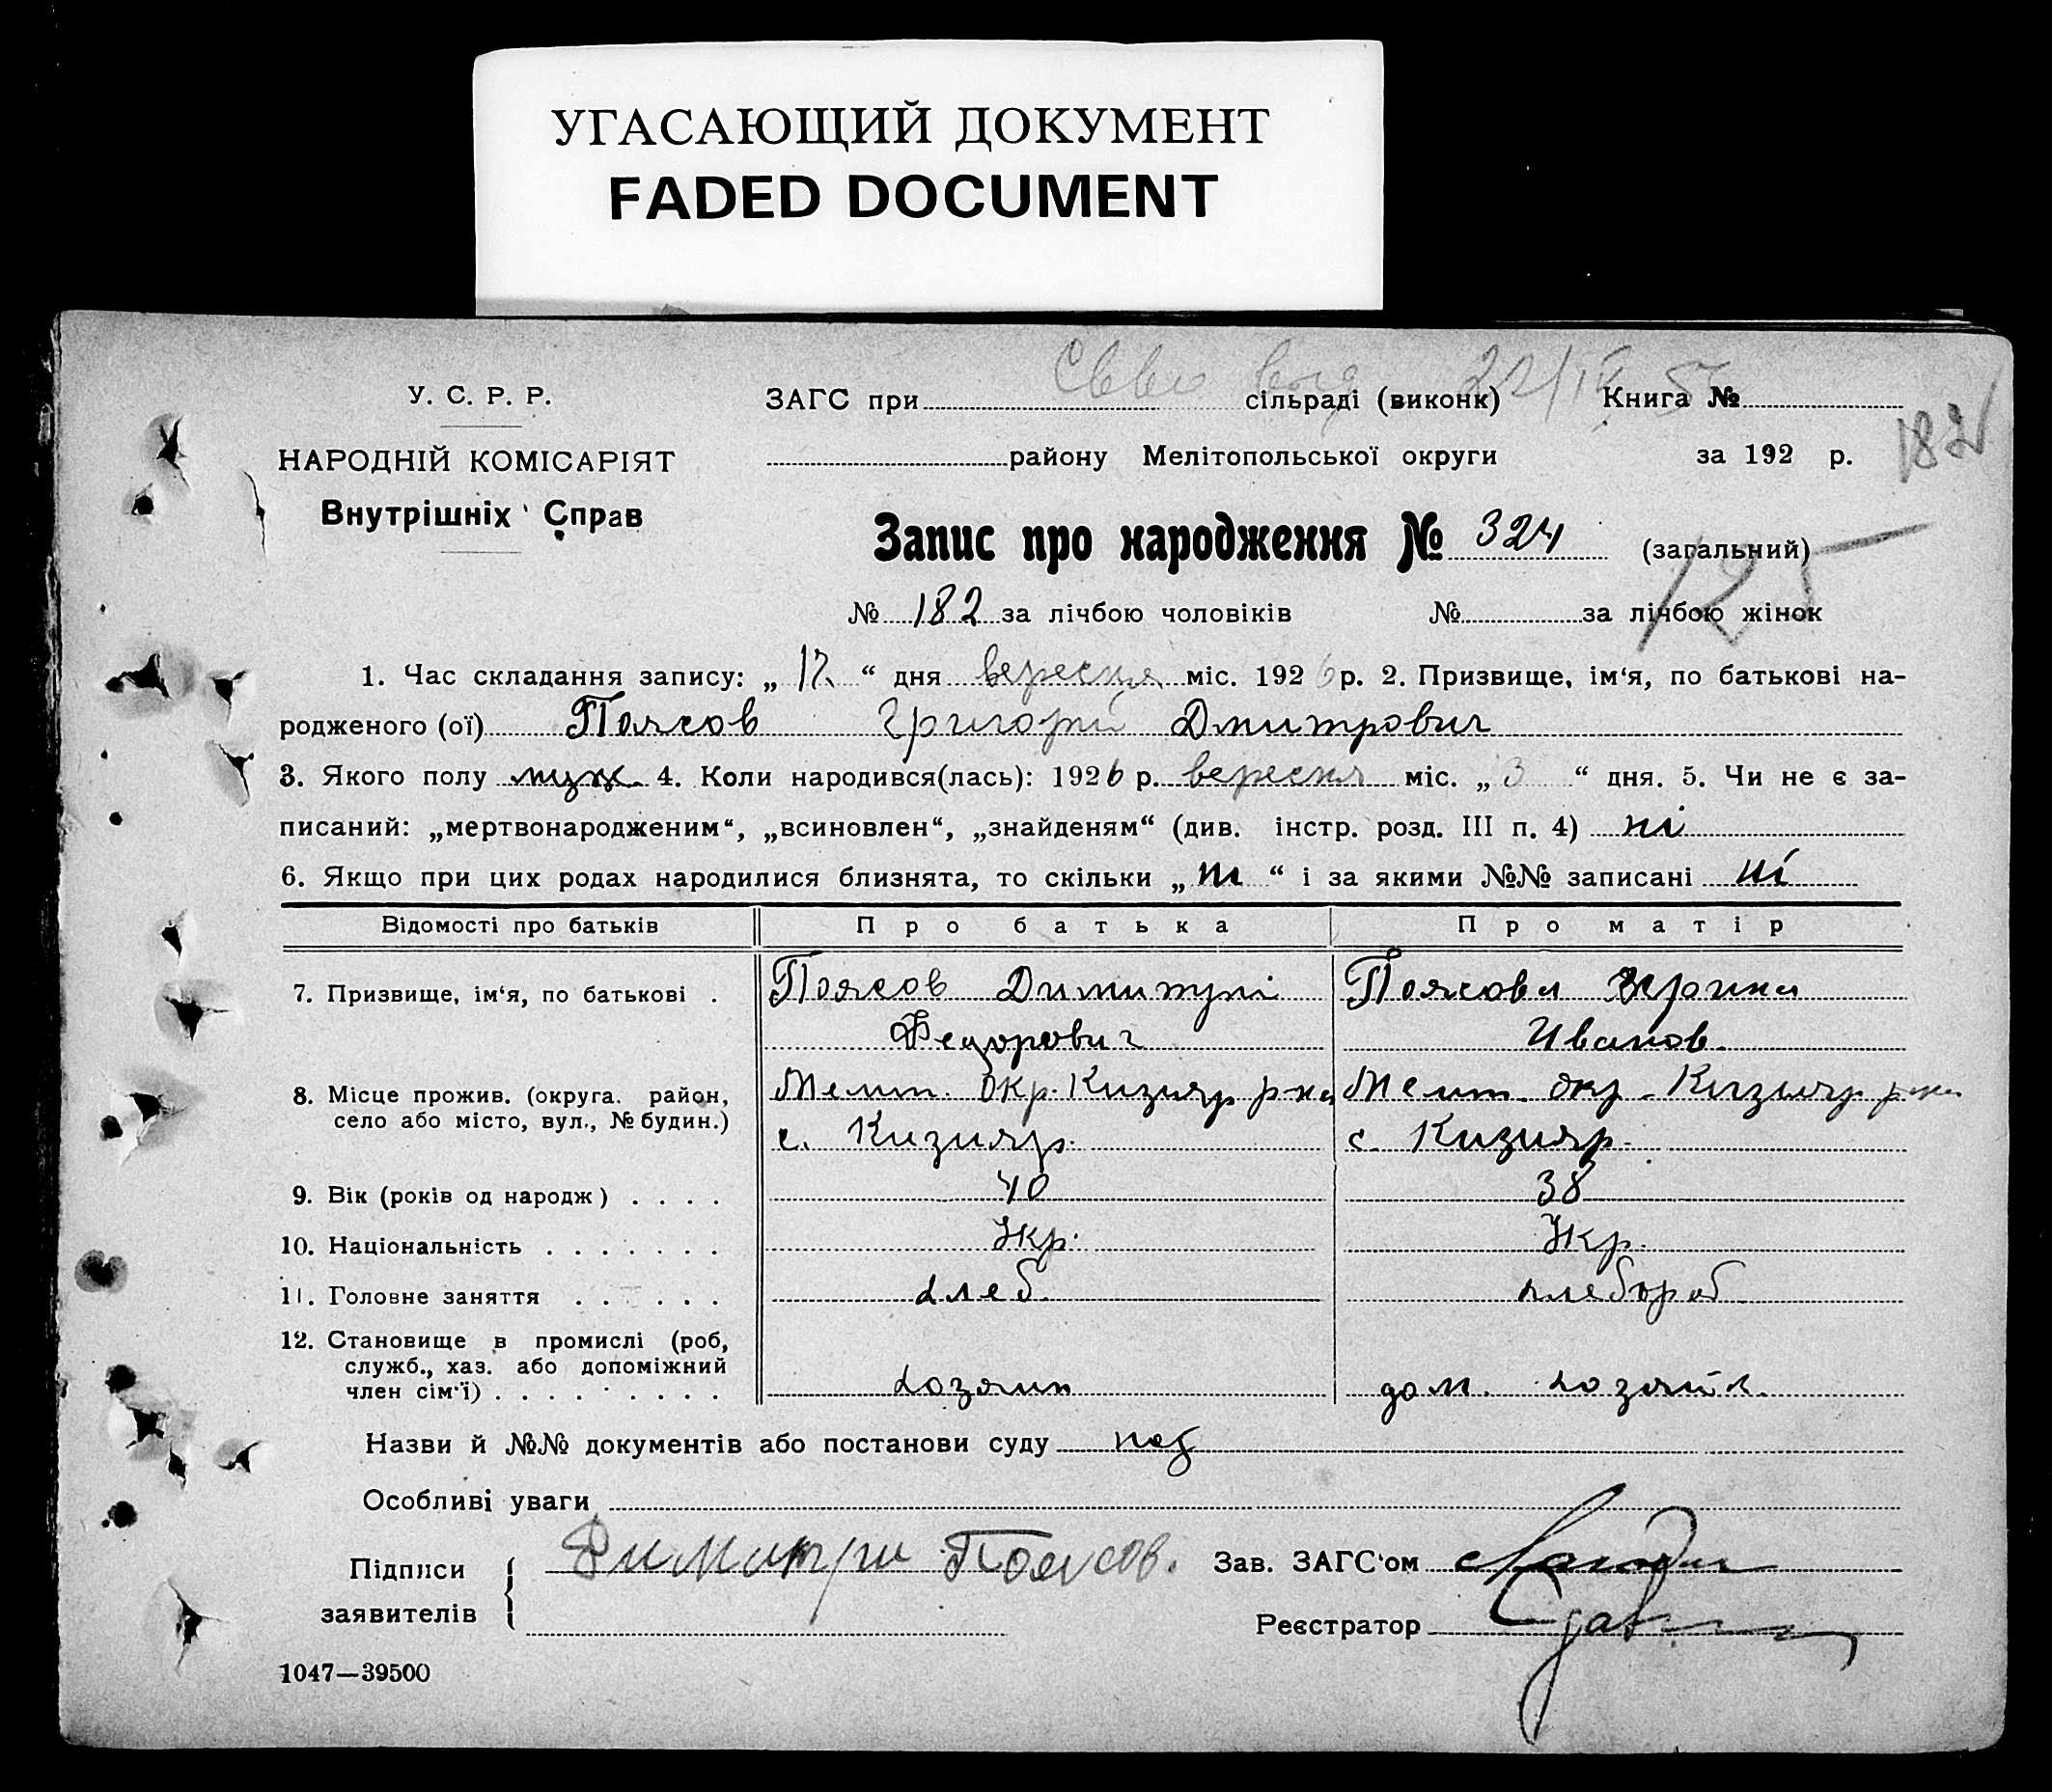 УГАСАЮЩИЙ ДОКУМЕНТ
FADED DOCUMENT
У. С. Р. Р.
НАРОДНІЙ КОМІСАРІЯТ
Внутрішніх Справ
ЗАГС при сільраді (виконк) Книга №
району Мелітопольської округи за 192 р.
182
Запис про народження № 324 (загальний)
125
№ 182 за лічбою чоловіків № за лічбою жінок
1. Час складання запису: „ 17 “ дня вересня міс. 1926 р. 2. Призвище, ім‘я, по батькові на-
родженого (ої) Поясов Григорій Дмитрович
3. Якого полу муж. 4. Коли народився(лась): 1926 р. вересня міс. „ 3 “ дня. 5. Чи не є за-
писаний: „мертвонародженим“, „всиновлен“, „знайденям“ (див. інстр. розд. III п. 4) ні
6. Якщо при цих родах народилися близнята, то скільки „ ні “ і за якими №№ записані ні
Відомості про батьків Про батька Про матір
7. Призвище, ім‘я, по батькові . Поясов Димитрі Поясова
Федорович Иванов.
8. Місце прожив. (округа. район, Мелит. Окр. Кизияр р-на Мелит. Окр. Кизияр р-на
село або місто, вул., № будин.) с. Кизияр. с. Кизияр.
9. Вік (років од народж) . . . . 40 38
10. Національність . . . . . . . Укр. Укр.
11. Головне заняття . . . . . . хлеб. хлебороб
12. Становище в промислі (роб,
служб., хаз. або допоміжний
член сім‘ї) . . . . . . . . . хозяин дом. хозяйк.
Назви й №№ документів або постанови суду
Особливі уваги
Підписи Димитри Поясов. Зав. ЗАГС‘ом
заявителів Реєстратор
1047—39500